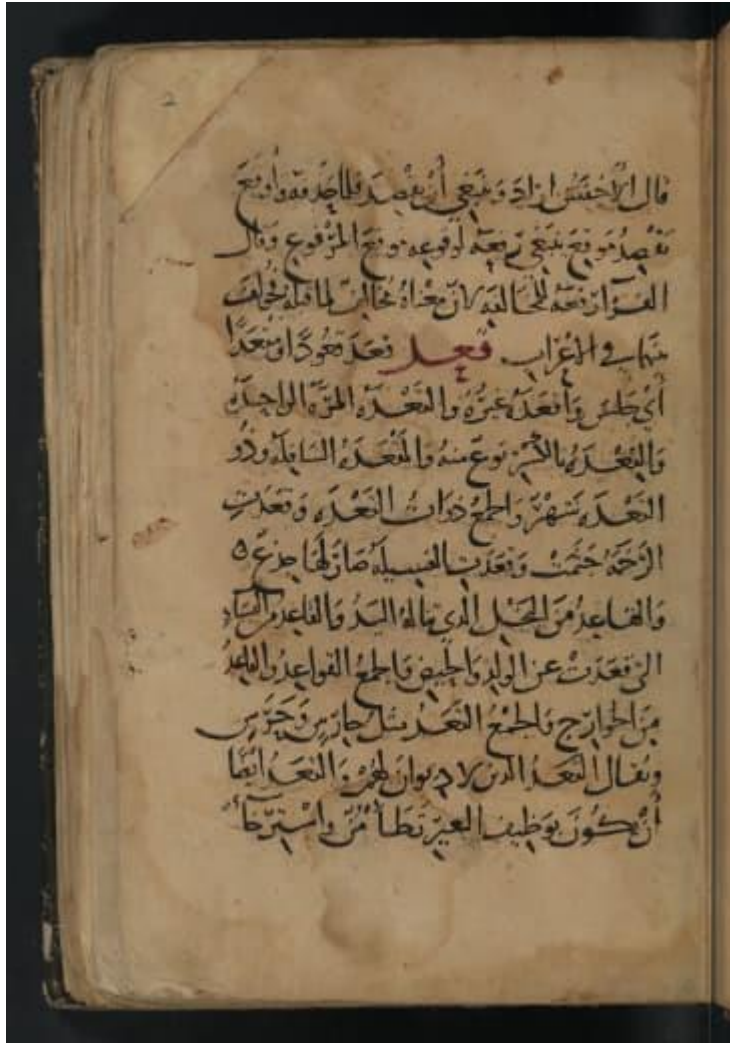 2
قال الأخفش اراد وينبغي أن يقصد فلما حذفه وأوقع
يقصد موقع ينبغي رفعه لوقوعه موقع المرفوع وقال
الفرا رفعه للمخالفة لان معناه مخالف لما قبله فخولف
بينهما في الاعراب قعد قعد قعودًا ومقعدًا
أي جلس وأقعده غيره والقعدة المرة الواحدة
والقعدة بالكسر نوع منه والمقعدة السافلة وذو
القعدة شهر والجمع ذوات القعدة وقعدت
الرخمة جثمت وقعدت الفسيلة صار لها جذع ه
والقاعد من النخل الذي تناله اليد والقاعد من النساء
التي قعدت عن الولد والحيض والجمع القواعد والقاعد
من الخوارج والجمع القعد مثل حارس وحرس
ويقال القعد الذين لا ديوان لهم والقعد أيضا
أن يكون بوظيف البعير تطأمن واسترخاء